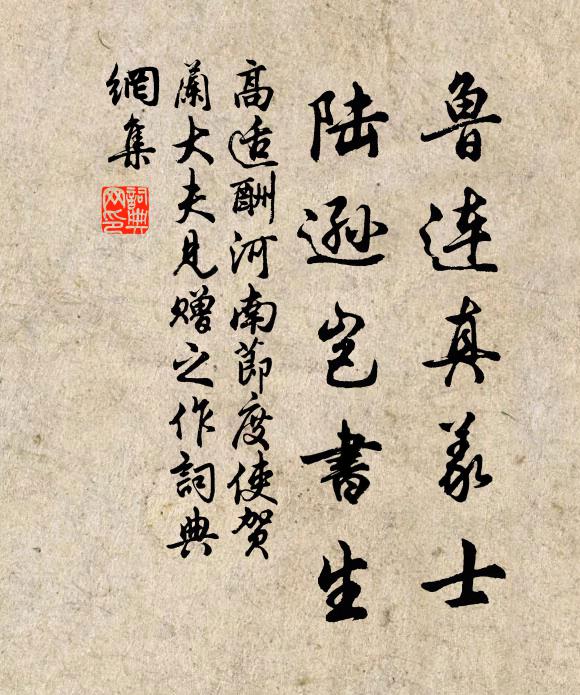 魯連真義士
陸遜豈書生
高适酬河南節度使賀
蘭大夫見贈之作詞典
網集
詞典
网印